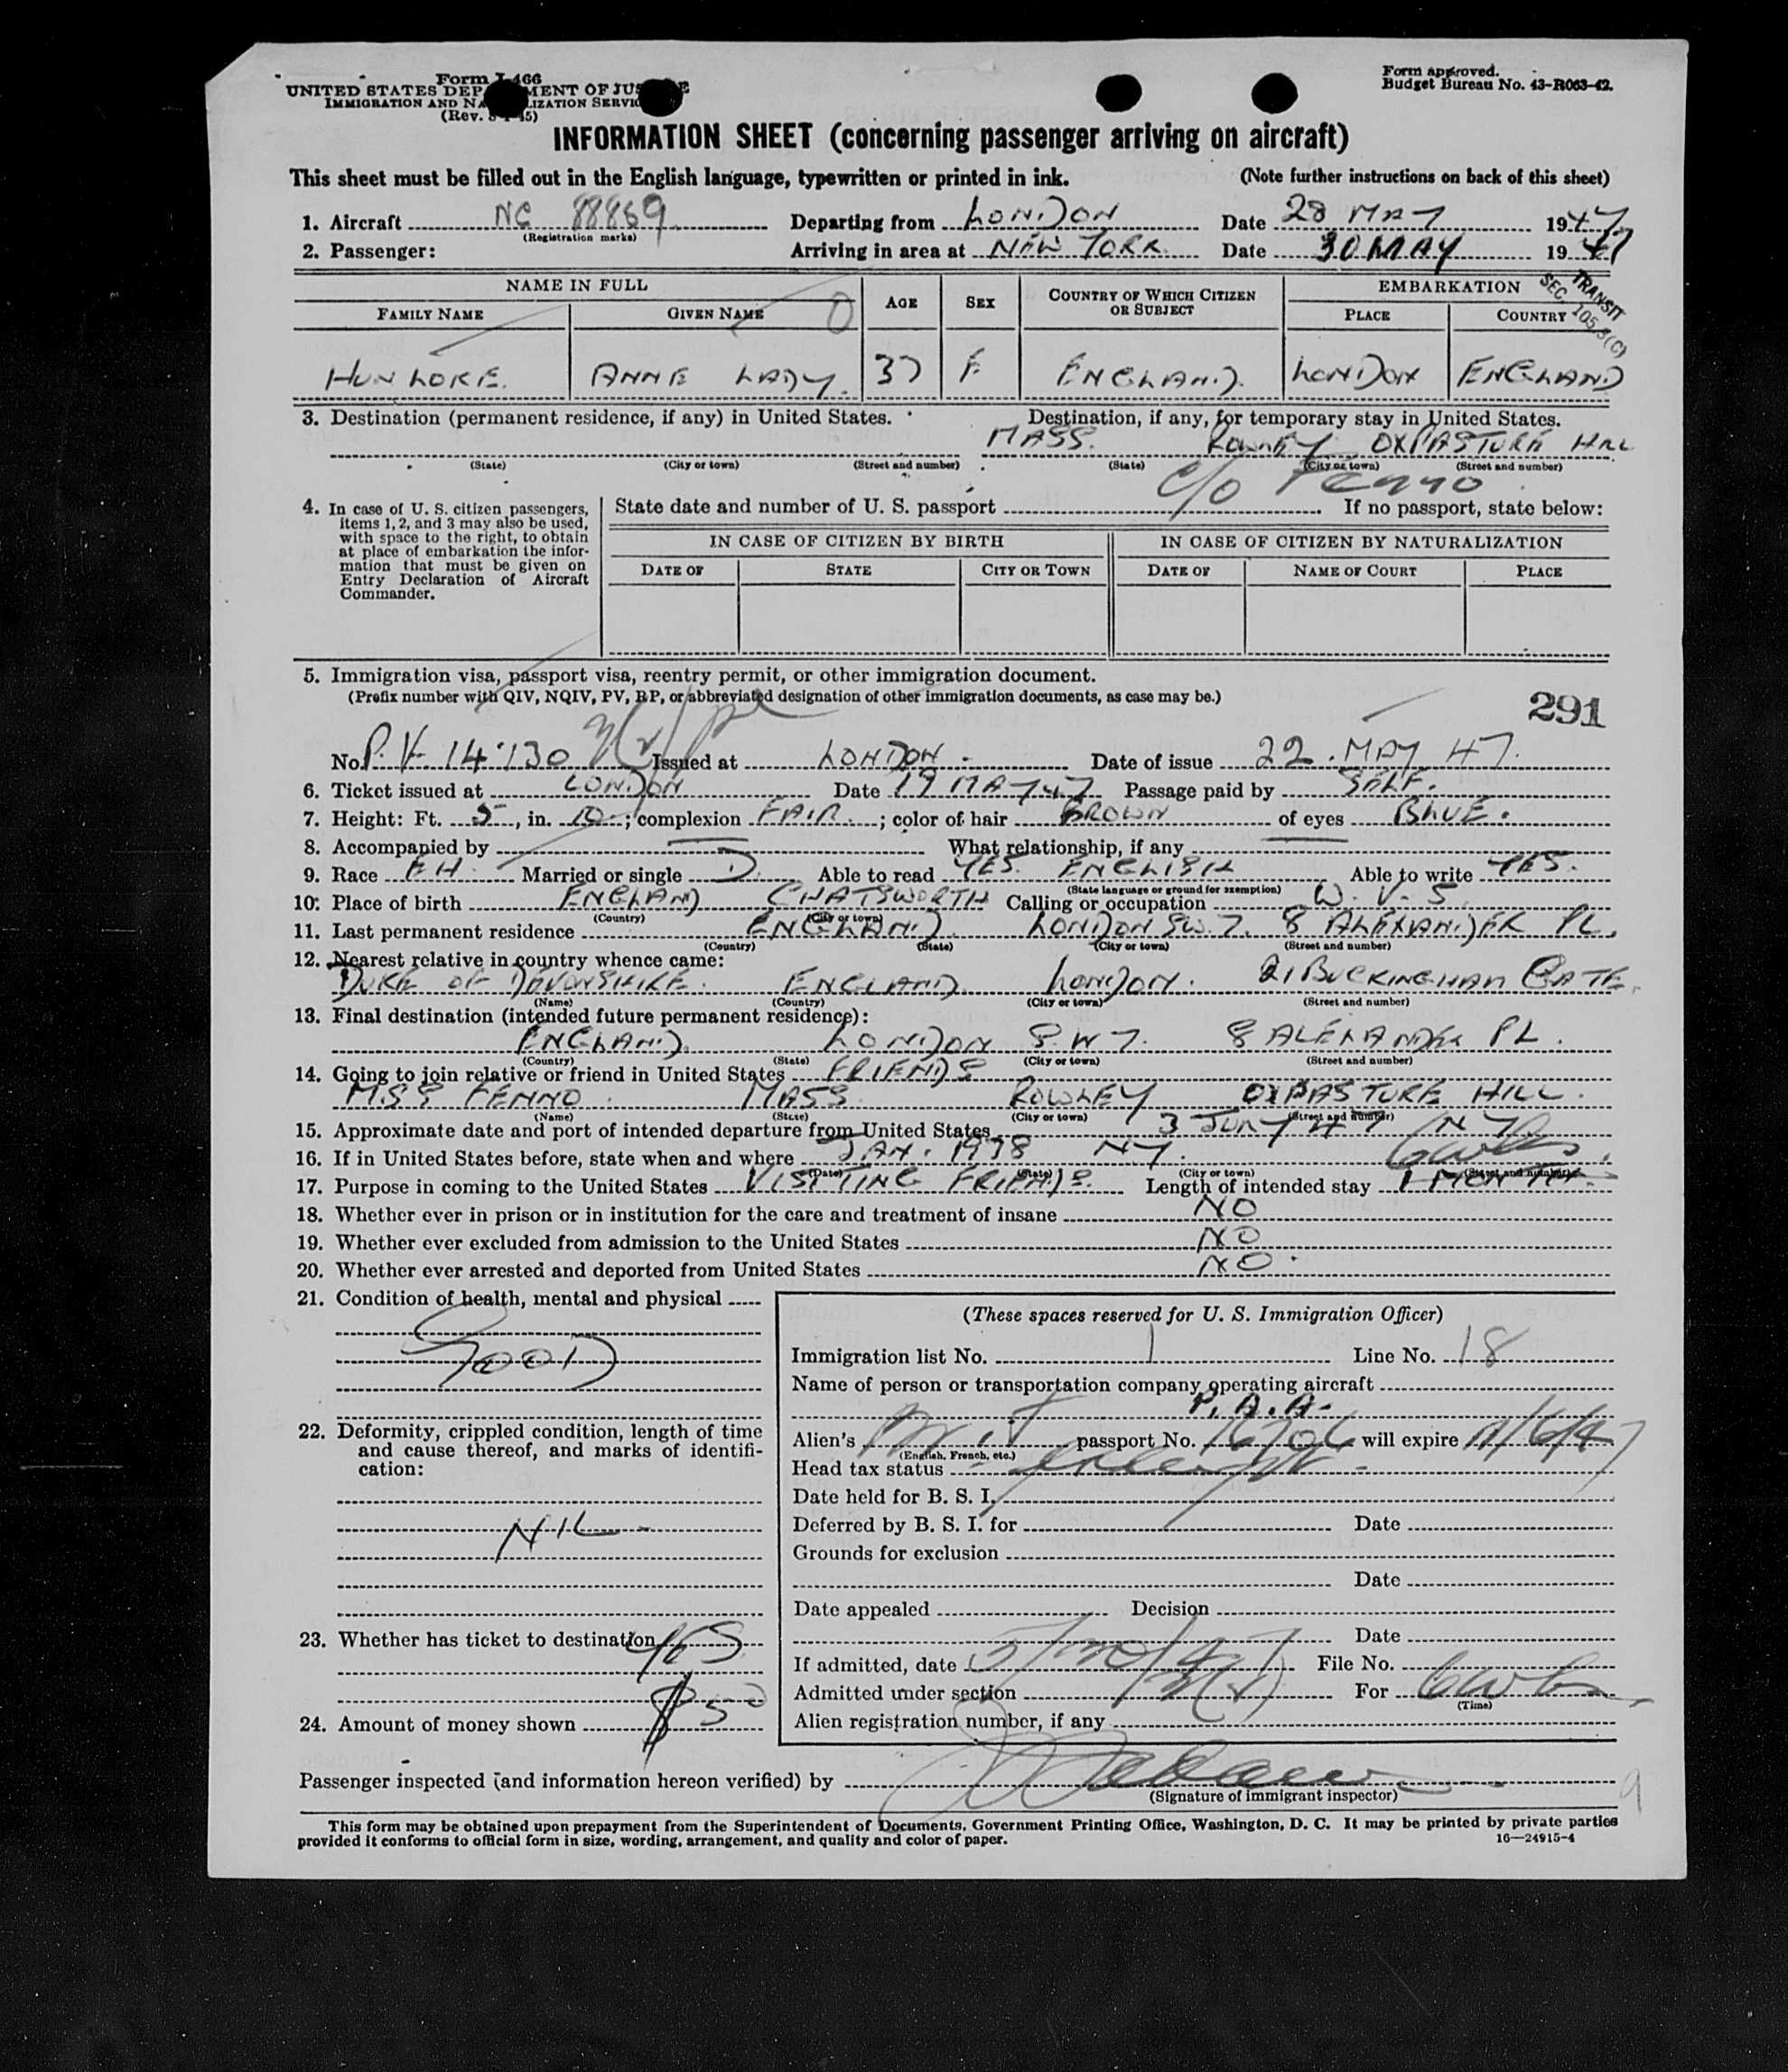 Form I-466
UNITED STATES DEPARTMENT OF JUSTICE
IMMIGRATION AND NATURALIZATION SERVICE
(Rev. 8-1-45)
Form approved.
Budget Bureau No. 43-R063-42.
INFORMATION SHEET (concerning passenger arriving on aircraft)
This sheet must be filled out in the English language, typewritten or printed in ink. (Note further instructions on back of this sheet)
1. Aircraft NC 88869 Departing from LONDON Date 28 MAY 1947
(Registration marks)
2. Passenger: Arriving in area at NEW YORK Date 30 MAY 1947
TRANSIT
SEC. 105.3(C)
NAME IN FULL AGE SEX COUNTRY OF WHICH CITIZEN OR SUBJECT EMBARKATION
FAMILY NAME GIVEN NAME PLACE COUNTRY
0
HUNLOKE. ANNE LADY. 37 F. ENGLAND. LONDON ENGLAND
3. Destination (permanent residence, if any) in United States. Destination, if any, for temporary stay in United States.
MASS. ROWLEY OXPASTURE HILL
(State) (City or town) (Street and number) (State) (City or town) (Street and number)
c/o Fenno
4. In case of U. S. citizen passengers, items 1, 2, and 3 may also be used, with space to the right, to obtain at place of embarkation the information that must be given on Entry Declaration of Aircraft Commander.
State date and number of U. S. passport If no passport, state below:
IN CASE OF CITIZEN BY BIRTH IN CASE OF CITIZEN BY NATURALIZATION
DATE OF STATE CITY OR TOWN DATE OF NAME OF COURT PLACE
5. Immigration visa, passport visa, reentry permit, or other immigration document.
(Prefix number with QIV, NQIV, PV, RP, or abbreviated designation of other immigration documents, as case may be.)
291
No. P.V. 14130 Issued at LONDON Date of issue 22. MAY 47.
6. Ticket issued at LONDON Date 19 MAY 47 Passage paid by SELF.
7. Height: Ft. 5, in. 10; complexion FAIR.; color of hair BROWN of eyes BLUE.
8. Accompanied by — What relationship, if any —
9. Race EH. Married or single D. Able to read YES. ENGLISH Able to write YES.
(State language or ground for exemption)
10. Place of birth ENGLAND CHATSWORTH Calling or occupation W. V. S.
(Country) (City or town)
11. Last permanent residence ENGLAND. LONDON SW.7. 8 ALEXANDER PL.
(Country) (State) (City or town) (Street and number)
12. Nearest relative in country whence came:
DUKE OF DEVONSHIRE. ENGLAND. LONDON. 21 BUCKINGHAM GATE.
(Name) (Country) (City or town) (Street and number)
13. Final destination (intended future permanent residence):
ENGLAND. LONDON S.W 7. 8 ALEXANDER PL.
(Country) (State) (City or town) (Street and number)
14. Going to join relative or friend in United States FRIENDS
MSS FENNO. MASS. ROWLEY OXPASTURE HILL.
(Name) (State) (City or town) (Street and number)
15. Approximate date and port of intended departure from United States 3 JULY 47 NY
16. If in United States before, state when and where JAN. 1938 NY.
(Date) (State) (City or town) (Street and number)
17. Purpose in coming to the United States VISITING FRIENDS. Length of intended stay 1 MONTH.
18. Whether ever in prison or in institution for the care and treatment of insane NO
19. Whether ever excluded from admission to the United States NO
20. Whether ever arrested and deported from United States NO.
21. Condition of health, mental and physical
GOOD
22. Deformity, crippled condition, length of time and cause thereof, and marks of identification:
NIL -
23. Whether has ticket to destination YES
24. Amount of money shown $50
(These spaces reserved for U. S. Immigration Officer)
Immigration list No. 1 Line No. 18
Name of person or transportation company operating aircraft
P. A. A.
Alien's Brit passport No. 16706 will expire 11/6/47
(English, French, etc.)
Head tax status
Date held for B. S. I.
Deferred by B. S. I. for Date
Grounds for exclusion
Date
Date appealed Decision
Date
If admitted, date 5/30/47 File No.
Admitted under section 3(2) For
(Time)
Alien registration number, if any
Passenger inspected (and information hereon verified) by
(Signature of immigrant inspector)
9
This form may be obtained upon prepayment from the Superintendent of Documents, Government Printing Office, Washington, D. C. It may be printed by private parties
provided it conforms to official form in size, wording, arrangement, and quality and color of paper. 16—24915-4